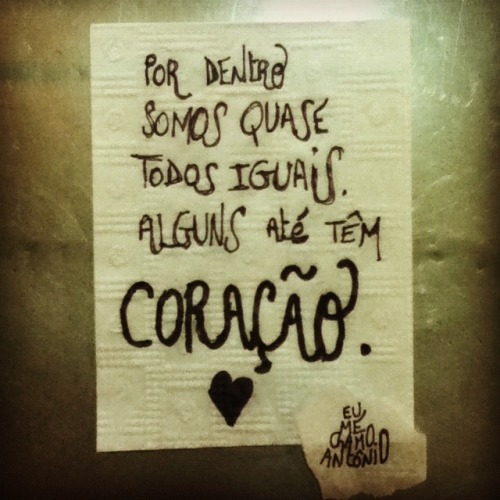 POR DENTRO
SOMOS QUASE
TODOS IGUAIS.
ALGUNS Até TÊM
CORAÇÃO.
EU
ME
CHAMO
ANTÔNIO